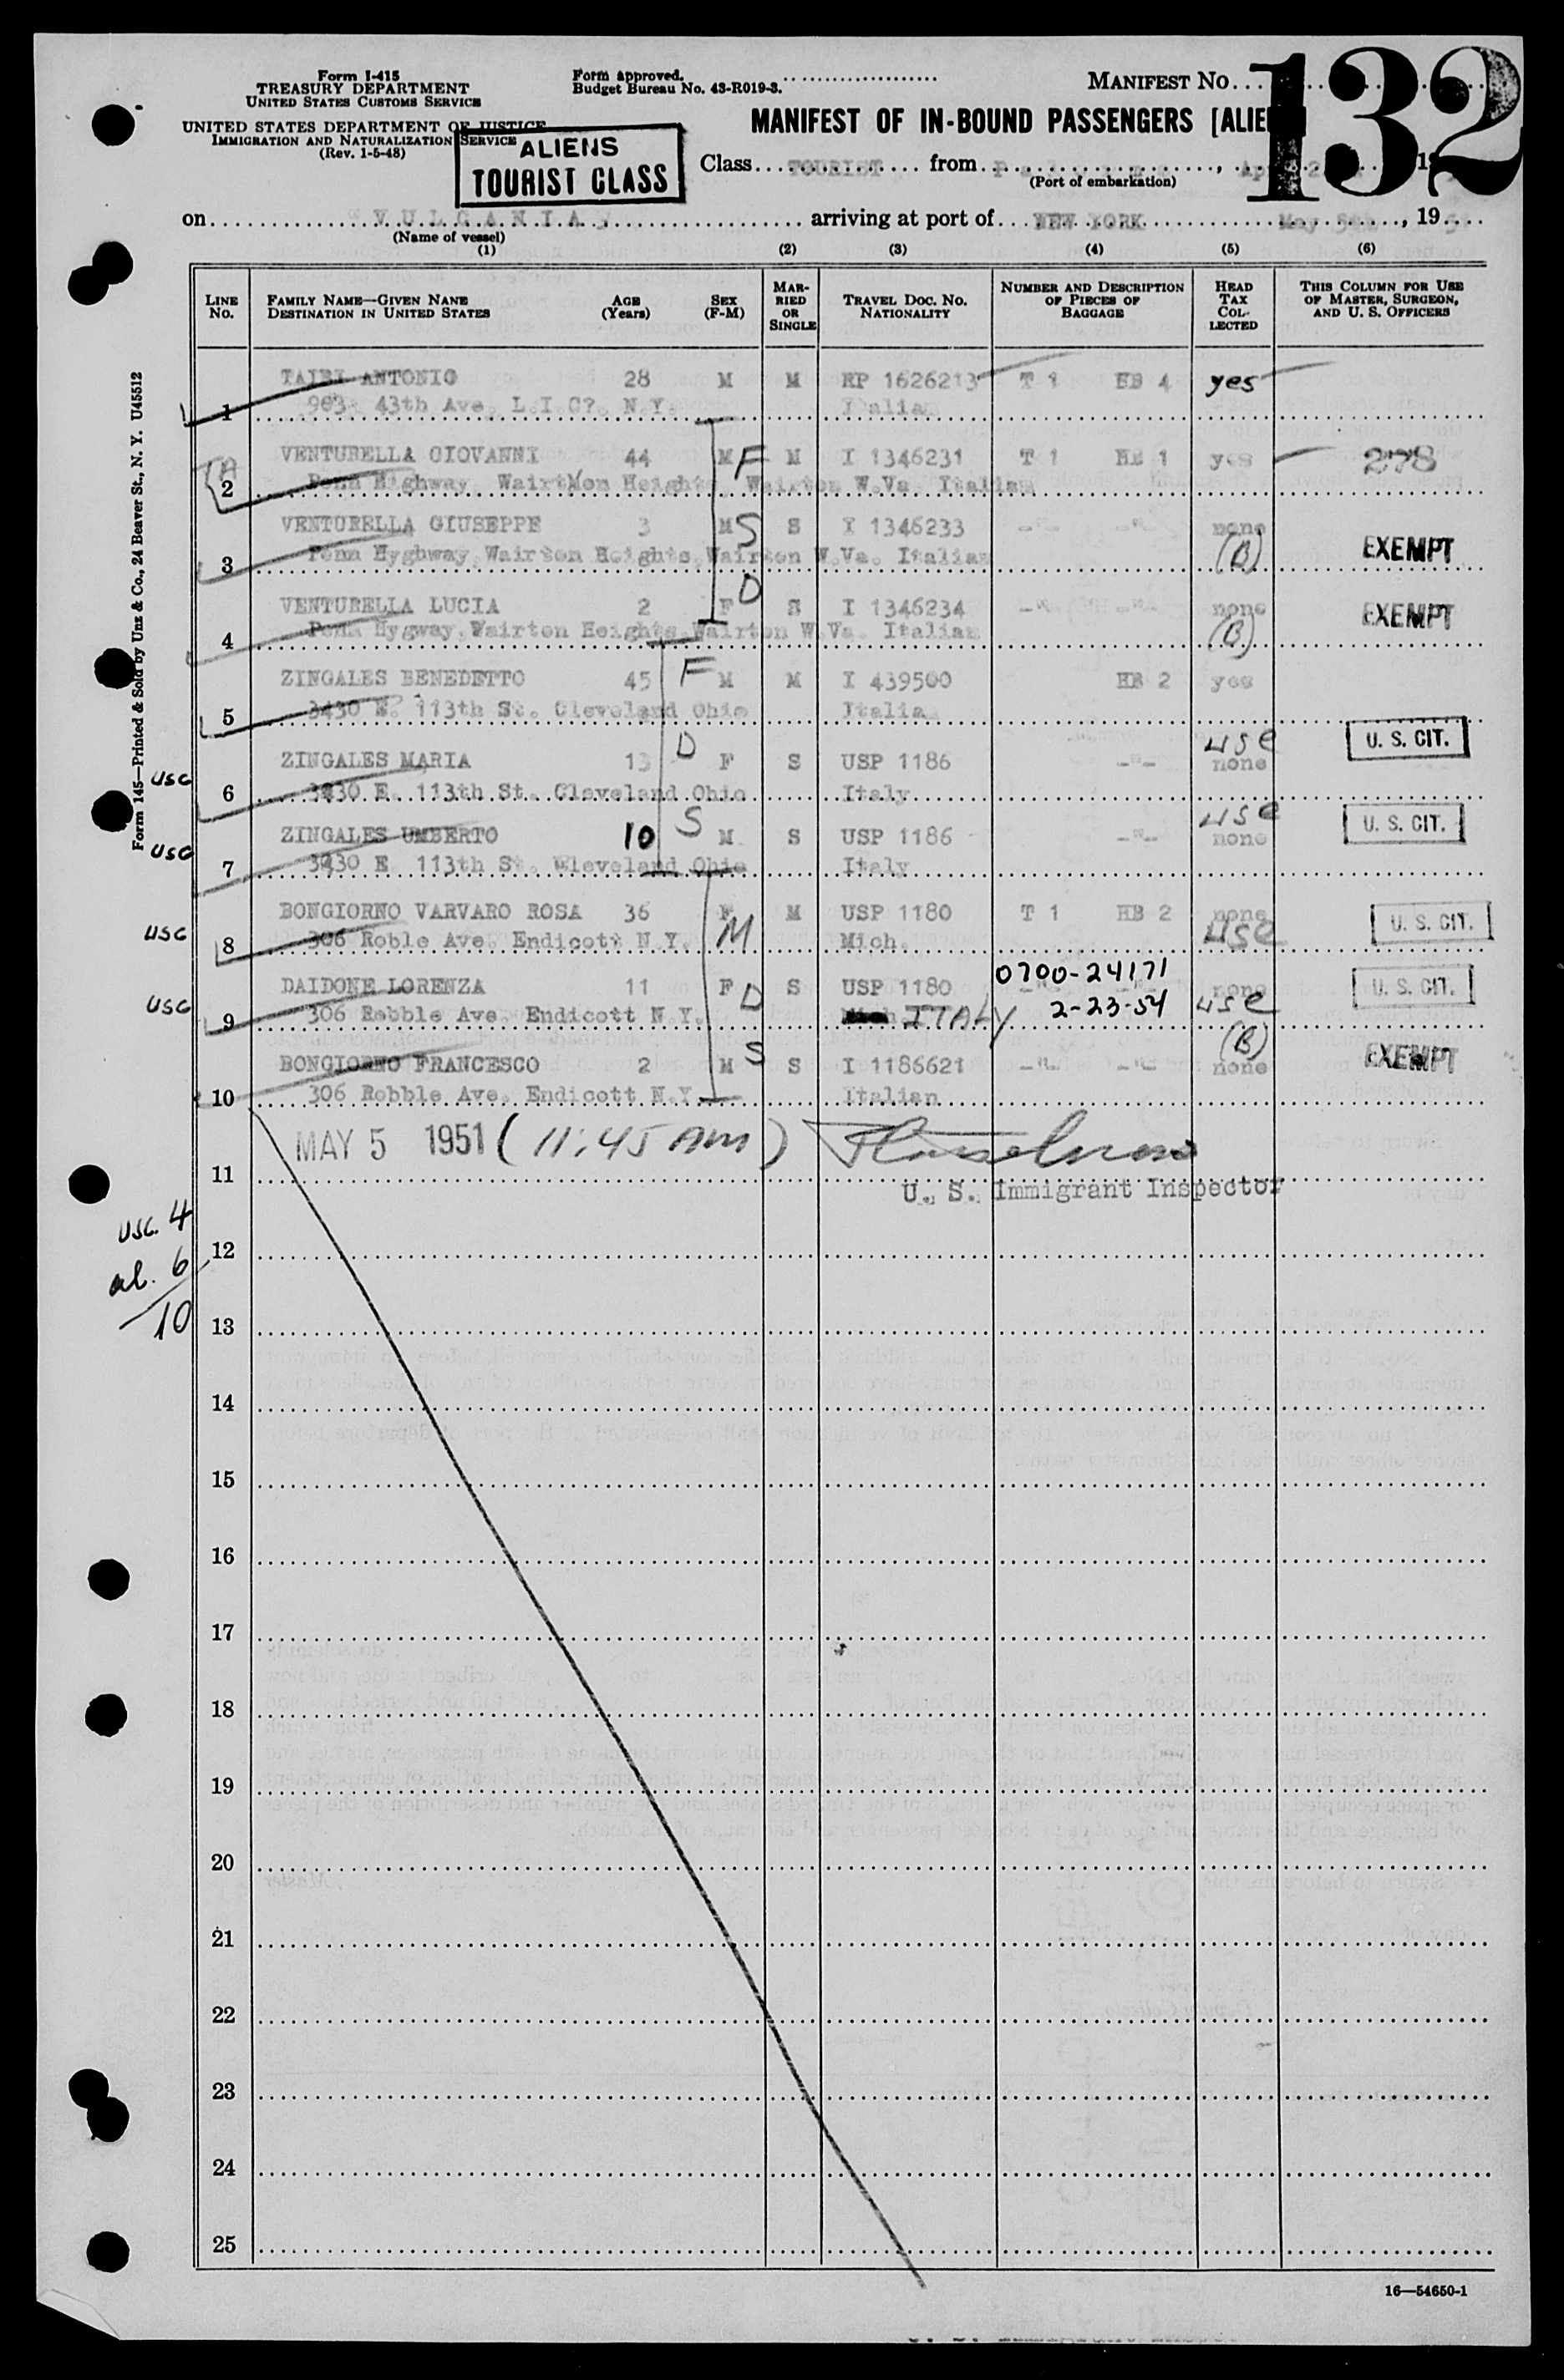 Form I-415
TREASURY DEPARTMENT
UNITED STATES CUSTOMS SERVICE
UNITED STATES DEPARTMENT OF JUSTICE
IMMIGRATION AND NATURALIZATION SERVICE
(Rev. 1-5-48)
Form approved.
Budget Bureau No. 43-R019-3.
MANIFEST No. 132
ALIENS
TOURIST CLASS
MANIFEST OF IN-BOUND PASSENGERS [ALIE
Class TOURIST from
(Port of embarkation)
on VULCANIA arriving at port of NEW YORK May 5th, 195
(Name of vessel)
(1) (2) (3) (4) (5) (6)
LINE No. FAMILY NAME—GIVEN NANE DESTINATION IN UNITED STATES AGE (Years) SEX (F-M) MARRIED OR SINGLE TRAVEL DOC. No. NATIONALITY NUMBER AND DESCRIPTION OF PIECES OF BAGGAGE HEAD TAX COLLECTED THIS COLUMN FOR USE OF MASTER, SURGEON, AND U. S. OFFICERS
TAIBI ANTONIO 28 M M RP 1626213 T 1 HB 4 yes
1 43th Ave. L.I C?. N.Y. Italian
VENTURELLA GIOVANNI 44 M F M I 1346231 T 1 HB 1 yes 278
2 Penn Highway Heights, Wairton W.Va. Italian
VENTURELLA GIUSEPPE 3 M S S I 1346233 -"- -"- none
3 Penn Hyghway Wairton Heights Wairton W.Va. Italian (B) EXEMPT
VENTURELLA LUCIA 2 F D S I 1346234 -"- -"- none EXEMPT
4 Penn Hygway. Wairton Heights Wairton W.Va. Italian (B)
ZINGALES BENEDETTO 45 F M M I 439500 HB 2 yes
5 3430 E. 113th St. Cleveland Ohio Italia
usc ZINGALES MARIA 13 D F S USP 1186 -"- usc none U. S. CIT.
6 3430 E. 113th St. Cleveland Ohio Italy
usc ZINGALES UMBERTO 10 S M S USP 1186 -"- usc none U. S. CIT.
7 3430 E 113th St. Wleveland Ohio Italy
usc BONGIORNO VARVARO ROSA 36 F M M USP 1180 T 1 HB 2 none U. S. CIT.
8 306 Roble Ave. Endicott N.Y. Mich. usc
usc DAIDONE LORENZA 11 F D S USP 1180 0700-24171 none U. S. CIT.
9 306 Robble Ave. Endicott N.Y. ITALY 2-23-54 usc
BONGIORNO FRANCESCO 2 M S S I 1186621 -"- -"- (B) none EXEMPT
10 306 Robble Ave. Endicott N.Y. Italian
MAY 5 1951 (11:45 AM)
11 U. S. Immigrant Inspector
usc. 4
12
al. 6
10
13
14
15
16
17
18
19
20
21
22
23
24
25
16—54650-1
Form 145—Printed & Sold by Unz & Co., 24 Beaver St., N. Y. U45512